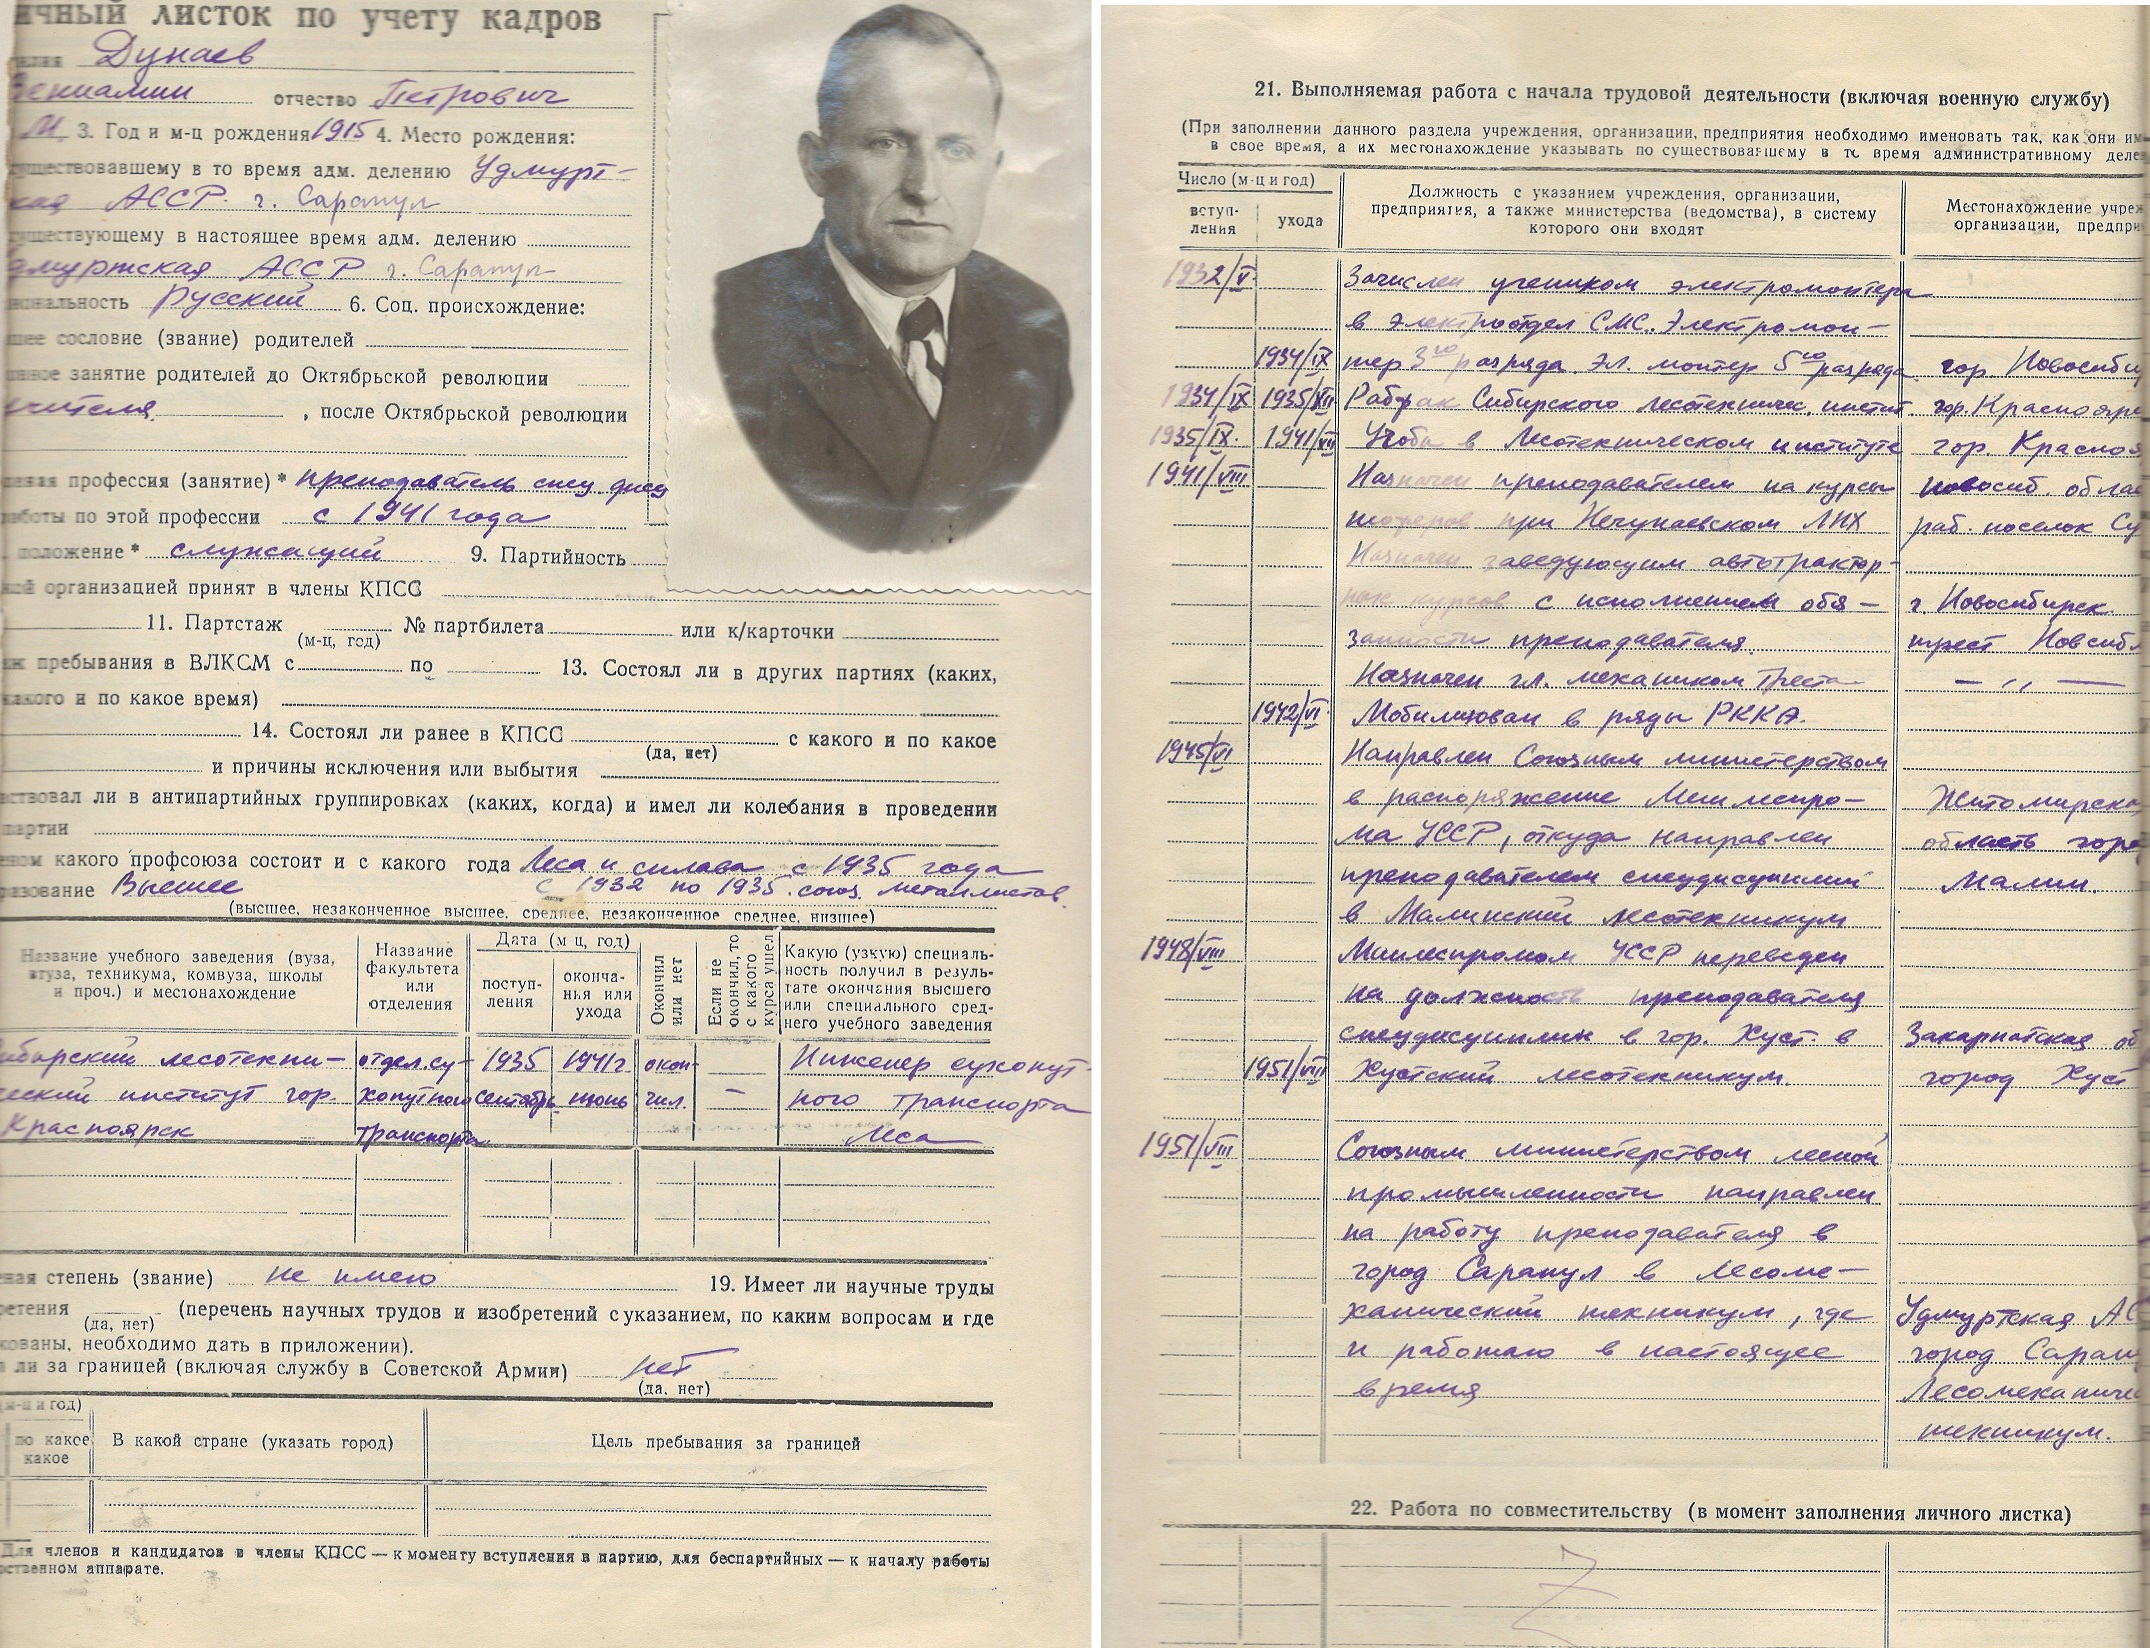 ичный листок по учету кадров
Дунаев
Вениамин отчество Петрович
М. 3. Год и м-ц рождения 1915 4. Место рождения:
существовавшему в то время адм. делению Удмурт-
кая АССР г. Сарапул
существующему в настоящее время адм. делению
Удмуртская АССР г. Сарапул
циональность Русский 6. Соц. происхождение:
шее сословие (звание) родителей
вное занятие родителей до Октябрьской революции
учителя, после Октябрьской революции
профессия (занятие) * преподаватель спец. дисц
работы по этой профессии с 1941 года
положение * служащий 9. Партийность
ной организацией принят в члены КПСС
11. Партстаж (м-ц, год) № партбилета или к/карточки
аж пребывания в ВЛКСМ с по 13. Состоял ли в других партиях (каких,
какого и по какое время)
14. Состоял ли ранее в КПСС (да, нет) с какого и по какое
и причины исключения или выбытия
вствовал ли в антипартийных группировках (каких, когда) и имел ли колебания в проведении
партии
еном какого профсоюза состоит и с какого года Леса и сплава с 1935 года
разование Высшее с 1932 по 1935 союз металлистов.
(высшее, незаконченное высшее, среднее, незаконченное среднее, низшее)
Название учебного заведения (вуза, втуза, техникума, комвуза, школы и проч.) и местонахождение
Название факультета или отделения
Дата (м-ц, год)
поступ-ления
оконча-нья или ухода
Окончил или нет
Если не окончил, то с какого курса ушел
Какую (узкую) специаль-ность получил в резуль-тате окончания высшего или специального сред-него учебного заведения
Сибирский лесотехни- отдел су- 1935 1941 г окон- — Инженер сухопут-
ческий институт гор. хопутного сентябрь июнь чил. — ного транспорта
Красноярск транспорта леса
ная степень (звание) не имею 19. Имеет ли научные труды
ретения (да, нет) (перечень научных трудов и изобретений с указанием, по каким вопросам и где
кованы, необходимо дать в приложении).
ли за границей (включая службу в Советской Армии) нет
(да, нет)
м-ц и год)
по какое
какое
В какой стране (указать город)
Цель пребывания за границей
Для членов и кандидатов в члены КПСС — к моменту вступления в партию, для беспартийных — к началу работы
рственном аппарате.
21. Выполняемая работа с начала трудовой деятельности (включая военную службу)
(При заполнении данного раздела учреждения, организации, предприятия необходимо именовать так, как они им
в свое время, а их местонахождение указывать по существовавшему в то время административному деле
Число (м-ц и год)
вступ-ления
ухода
Должность с указанием учреждения, организации,
предприятия, а также министерства (ведомства), в систему
которого они входят
Местонахождение учреж
организации, предпри
1932/V Зачислен учеником электромонтера
в электроотдел СМС. Электромон-
1934/IX тер 3го разряда. Эл. монтер 5го разряда гор. Новосиби
1934/IX 1935/VII Рабфак Сибирского лесотехнич. инстит. гор. Красноярс
1935/IX. 1941/VII Учеба в Лесотехническом институте гор. Красноя
1941/VIII Назначен преподавателем на курсы Новосиб. облас
шоферов при Нечунаевском ЛПХ раб. поселок Су
Назначен заведующим автотрактор-
ных курсов с исполнением обя- г Новосибирск
занности преподавателя. трест Новсибл
Назначен гл. механиком треста — ,, —
1942/VI. Мобилизован в ряды РККА.
1945/VI Направлен Союзным министерством
в распоряжение Минлеспро- Житомирска
ма УССР, откуда направлен область горо
преподавателем спецдисциплин Малин.
в Малинский лесотехникум
1948/VIII Минлеспромом УССР переведен
на должность преподавателя
спецдисциплин в гор. Хуст. в Закарпатская об
1951/VIII Хустский лесотехникум. город Хуст
1951/VIII Союзным министерством лесной
промышленности направлен
на работу преподавателя в
город Сарапул в Лесоме-
ханический техникум, где Удмуртская АС
и работаю в настоящее город Сарап
время Лесомеханиче
техникум.
22. Работа по совместительству (в момент заполнения личного листка)